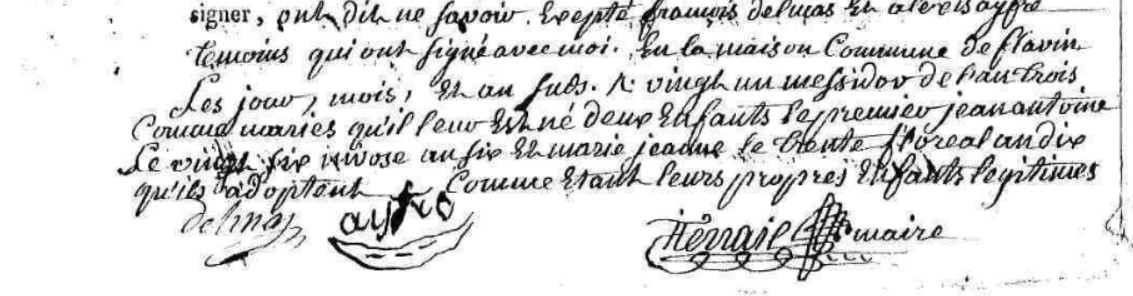 signer, ont dit ne savoir. Exepté françois delmas Et alexis ayfre
temoins qui ont signé avec moi. En la maison Commune de flavin
Les jour, mois, Et an susd. vingt un messidor de l'an trois
Comme maries qu'il leur Est né deux Enfants le premier jean antoine
Le vingt six nivose an six Et marie jeanne le trente floreal an dix
qu'ils adoptent Comme Etant leurs propres Enfants legitimes
delmas ayfre maire